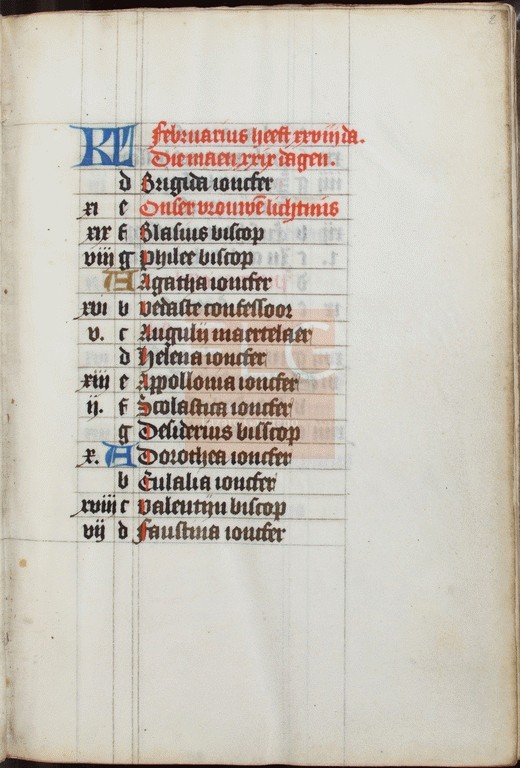 KL Februarius heeft xxviij da.
Die maen xxix dagen.
d Brigida ioncfer
xi e Onser vrouwē lichtmis
xix f Blasius biscop
viij g Philee biscop
A Agatha ioncfer
xvi b Vedaste confessoor
v. c Augulij maertelaer
d Helena ioncfer
xiij e Appollonia ioncfer
ij. f Scolastica ioncfer
g Desiderius bisscop
x. A Dorothea ioncfer
b Eulalia ioncfer
xviij c Valentijn biscop
vij d Faustina ioncfer